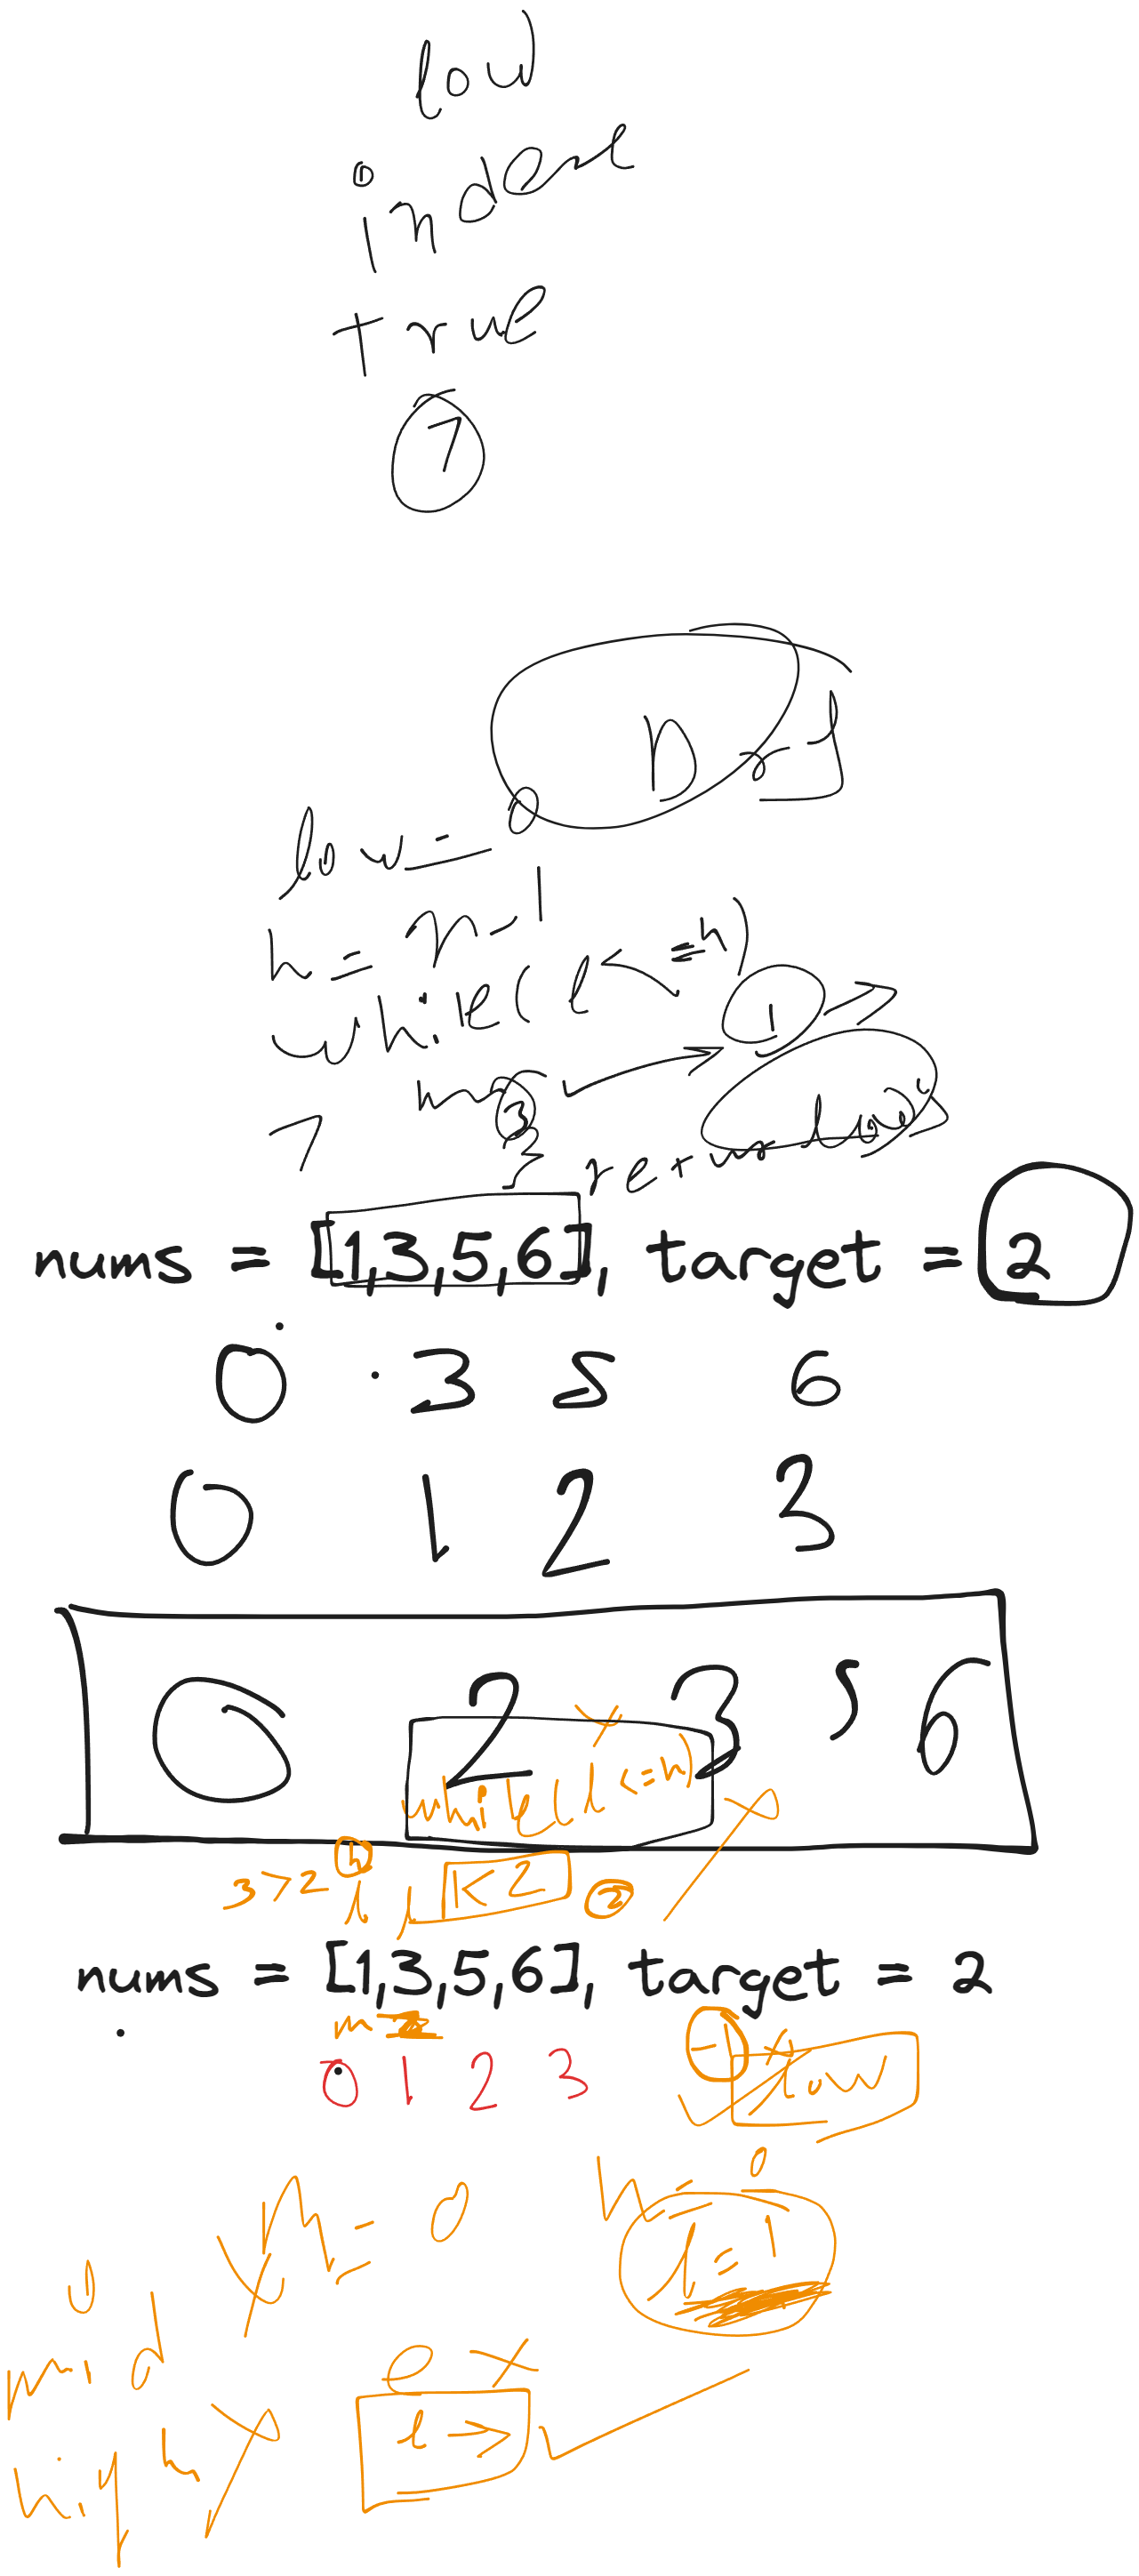 low
index
true
7
n - 1
low = 0
h = n - 1
while(l <= h)
1
3
7
} return low;
nums = [1,3,5,6], target = 2
0 3 5 6
0 1 2 3
0 2 3 5 6
while(l <= h)
3 > 2 h
l l 1 < 2 2
nums = [1,3,5,6], target = 2
m =
0 1 2 3
-1 low
m = 0 h = 0
l = 1
mid
high
l →